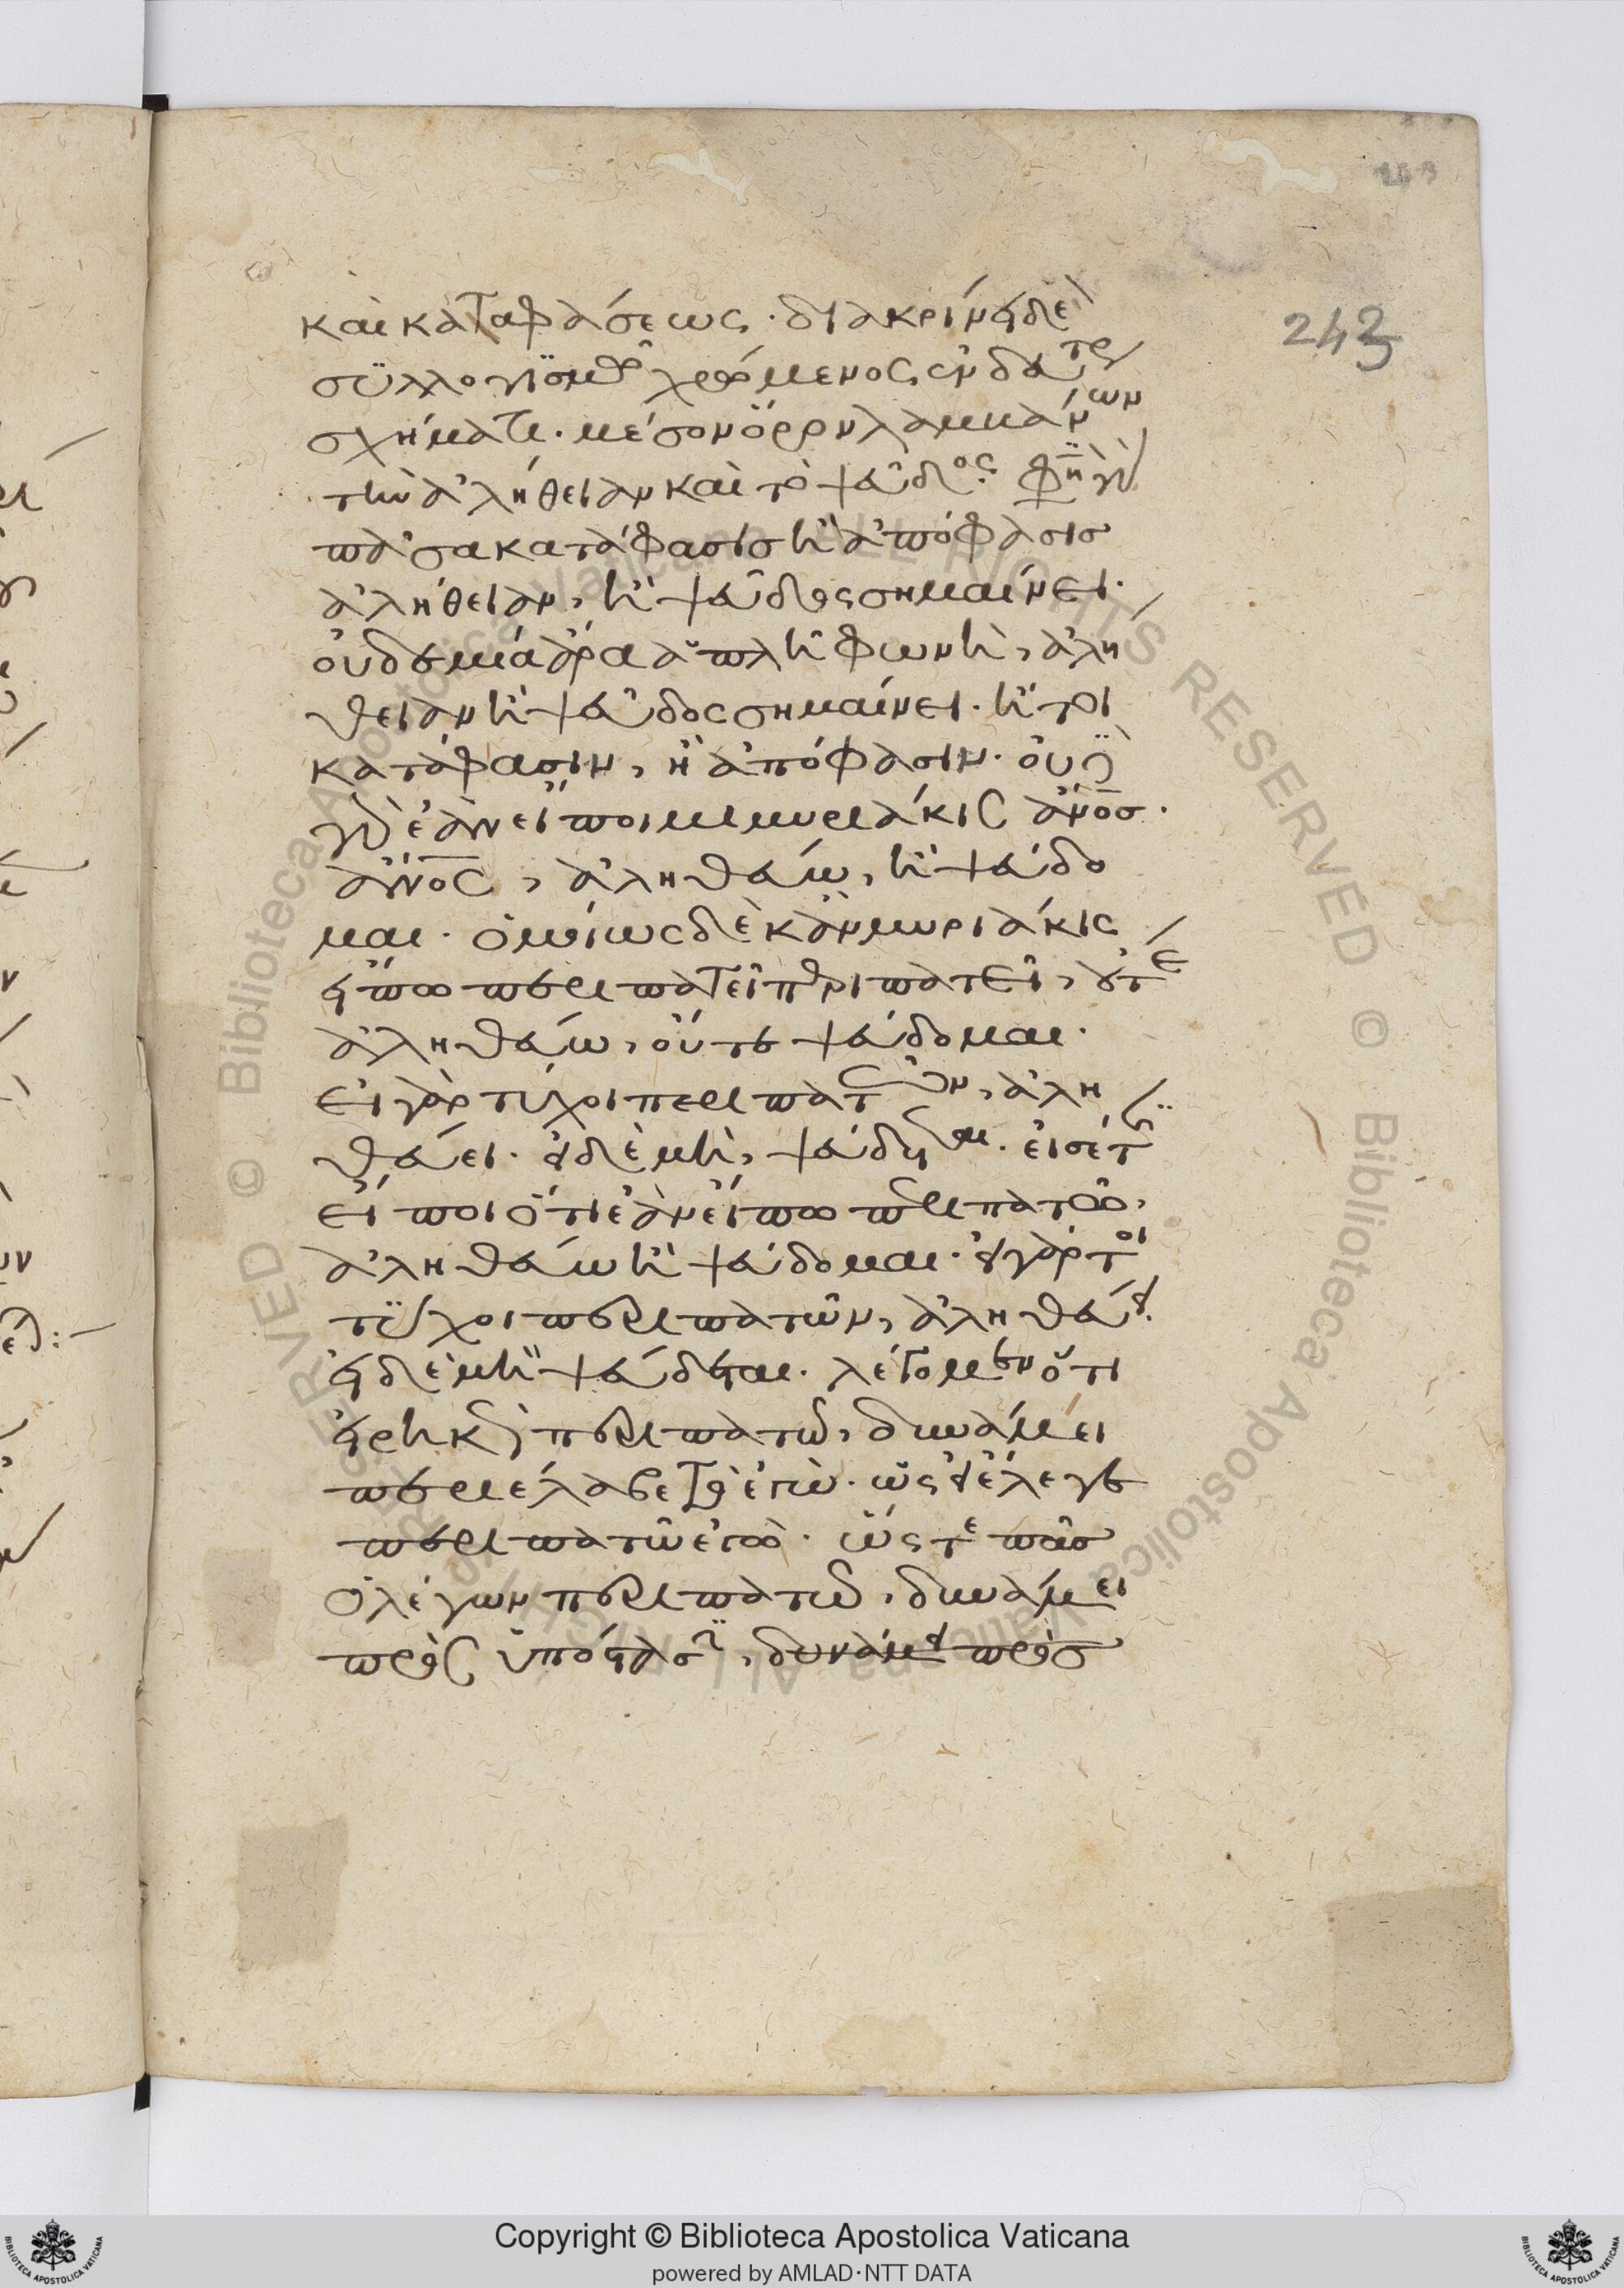 243
καὶ καταφάσεως · διακρίνει δὲ
συλλογισμῷ χρώμενος ἐν δευτέρῳ
σχήματι · μέσον ὅρον λαμβάνων
τὴν ἀλήθειαν καὶ τὸ ψεῦδος φησὶ γὰρ
πᾶσα κατάφασις ἢ ἀπόφασις
ἀλήθειαν, ἢ ψεῦδος σημαίνει ·
οὐδεμία ἄρα ἁπλῆ φωνὴ, ἀλή
θειαν ἢ ψεῦδος σημαίνει · ἤτοι
κατάφασιν, ἢ ἀπόφασιν · οὔτε
γὰρ ἐὰν εἴποιμι μυριάκις ἄνος ·
ἄνος, ἀληθεύω, ἢ ψεύδο
μαι · ὁμοίως δὲ κἂν μυριάκις
εἴπω περιπατεῖ περιπατεῖ, οὔτε
ἀληθεύω, οὔτε ψεύδομαι ·
εἰ γὰρ τύχοι περιπατῶν, ἀλη
θεύει · εἰ δὲ μὴ, ψεύδεται ·
εἴποι ὅτι ἐὰν εἴπω περιπατῶ,
ἀληθεύω ἢ ψεύδομαι · εἰ γάρ τοι
τύχοι περιπατῶν, ἀληθεύει ·
εἰ δὲ μὴ ψεύδεται · λέγομεν ὅτι
εἰρηκὼς περιπατῶ, δυνάμει
περιέλαβε τὸ ἐγὼ · ὡς εἰ ἔλεγε
περιπατῶ ἐγὼ · ὥστε πᾶς
ὁ λέγων περιπατῶ, δυνάμει
πρὸς ὑπόστασιν, δυνάμει πρὸς
Copyright © Biblioteca Apostolica Vaticana
powered by AMLAD·NTT DATA